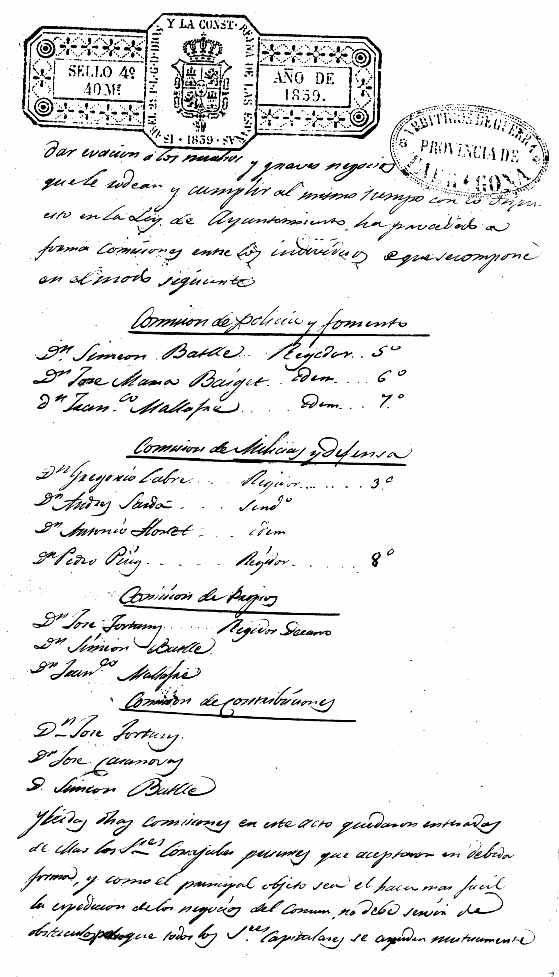 SELLO 4º
40 Mˢ
Y LA CONST.
1839
AÑO DE
1839.
ARBITRIOS DE GUERRA
PROVINCIA DE
TARRAGONA
dar evacion a los muchos y graves negocios
que le rodean y cumplir al mismo tiempo con lo
en la Ley de Ayuntamiento, ha procedido a
forma Comisiones entre los individuos que se compone
en el modo siguiente
Comision de policia y fomento
Dn. Simeon Batlle Regidor 5º
Dn. Jose Maria Baiget Edem 6º
Dn. Juan.co Mallafre Edem 7º
Comision de Milicias y defensa
Dn. Gregorio Cabre Regidor 3º
Dn. Andres Sardá Sendº
Dn. Antonio Edem
Dn. Pedro Puig Regidor 8º
Comision de Propios
Dn. Jose Fortuny Regidor Decano
Dn. Simeon Batlle
Dn. Juan.co Mallafre
Comision de contribuciones
Dn. Jose Fortuny
Dn. Jose Casanovas
D. Simeon Batlle
Y leidas dhas Comisiones en este acto quedaron enterados
de ellas los Sres Concejales presentes que aceptaron en debida
forma, y como el principal objeto sea el hacer mas facil
la expedicion de los negocios del Comun, no debe servir de
obstaculo que todos los Sres Capitulares se ayuden mutuamente